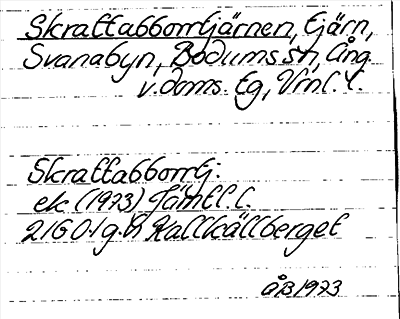 Skrattabborrtjärnen, tjärn,
Svanabyn, Bodums sn, Ång.
v.doms. tg, Vrnl. l.
Skrattabborrtj.
ek (1973) Jämtl. l.
21G 0.1 g.h Kallkällberget
ÅB 1973